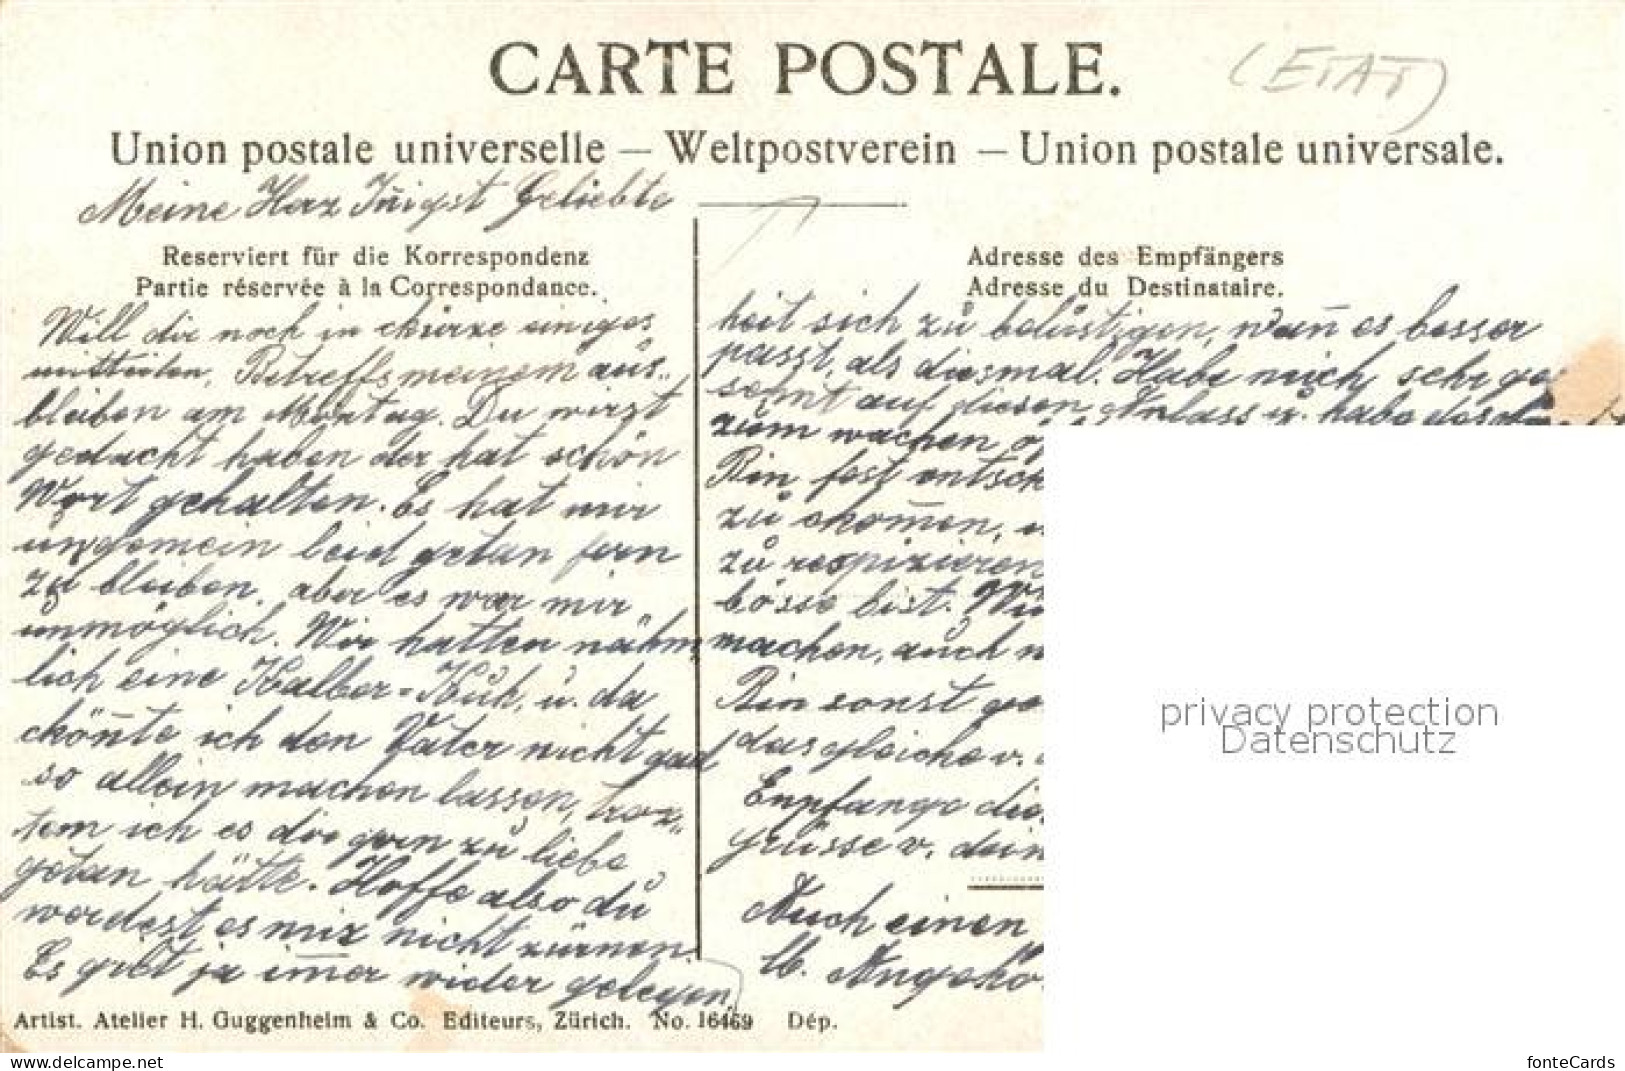 CARTE POSTALE.
(ETAT)
Union postale universelle — Weltpostverein — Union postale universale.
Meine Herz Iñigst Geliebte
Reserviert für die Korrespondenz
Partie réservée à la Correspondance.
Will dir noch in ckürze einiges
mitteilen, Betreffs meinem aus„
bleiben am Montag. Du wirst
gedacht haben der hat schön
Wort gehalten. Es hat mir
ungemein leid getan fern
zu bleiben, aber es war mir
unmöglich. Wir hatten nähm„
lich eine Kalber-Kuh, u. da
ckön̄te ich den Vater nicht grad
so allein machen lassen, troz„
tem ich es dir gern zu liebe
getan hätte. Hoffe also du
werdest es mir nicht zürnen.
Es gibt ja im̄er wider gelegen„
Adresse des Empfängers
Adresse du Destinataire.
heit sich zu belüstigen, wan̄ es besser
passt, als diesmal. Habe mich sehr ge
samt auf diesen Anlass u. habe das
zum wachen
Bin fest entsch
zu ckom̄en,
zu respizieren
bösse bist.
machen, auch
Bin sonst
das gleiche v.
Empfange die
Grüsse v. dein
Auch einen
lb. Angehö
privacy protection
Datenschutz
Artist. Atelier H. Guggenheim & Co. Editeurs, Zürich. No. 16469 Dép.
fonteCards